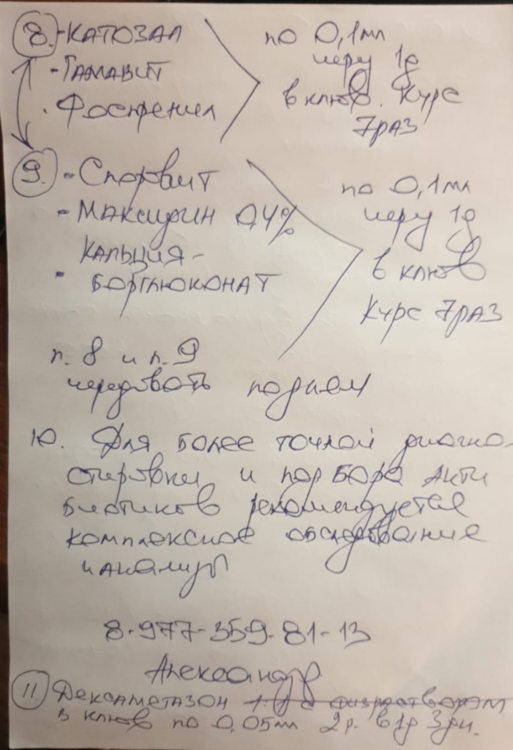 8. - КАТОЗАЛ
- ГАМАВИТ
- Фоспренил
по 0,1мл
черу 1д
в клюв. Курс
7раз
9. - Споровит
- Максидин 0,4%
КАЛЬЦИЯ -
- БОРГЛЮКОНАТ
по 0,1мл
черу 1д
в клюв
Курс 7раз
п. 8 и п. 9
чередовать подням
10. Для более точной диагно-
стировки и подбора Анти
биотиков рекомендуется
комплексное обследование
и анализы
8-977-359-81-13
Александр
11. Дексаметазон 1:1 с физраствором
в клюв по 0,05мл 2р. в 1д 3дн.